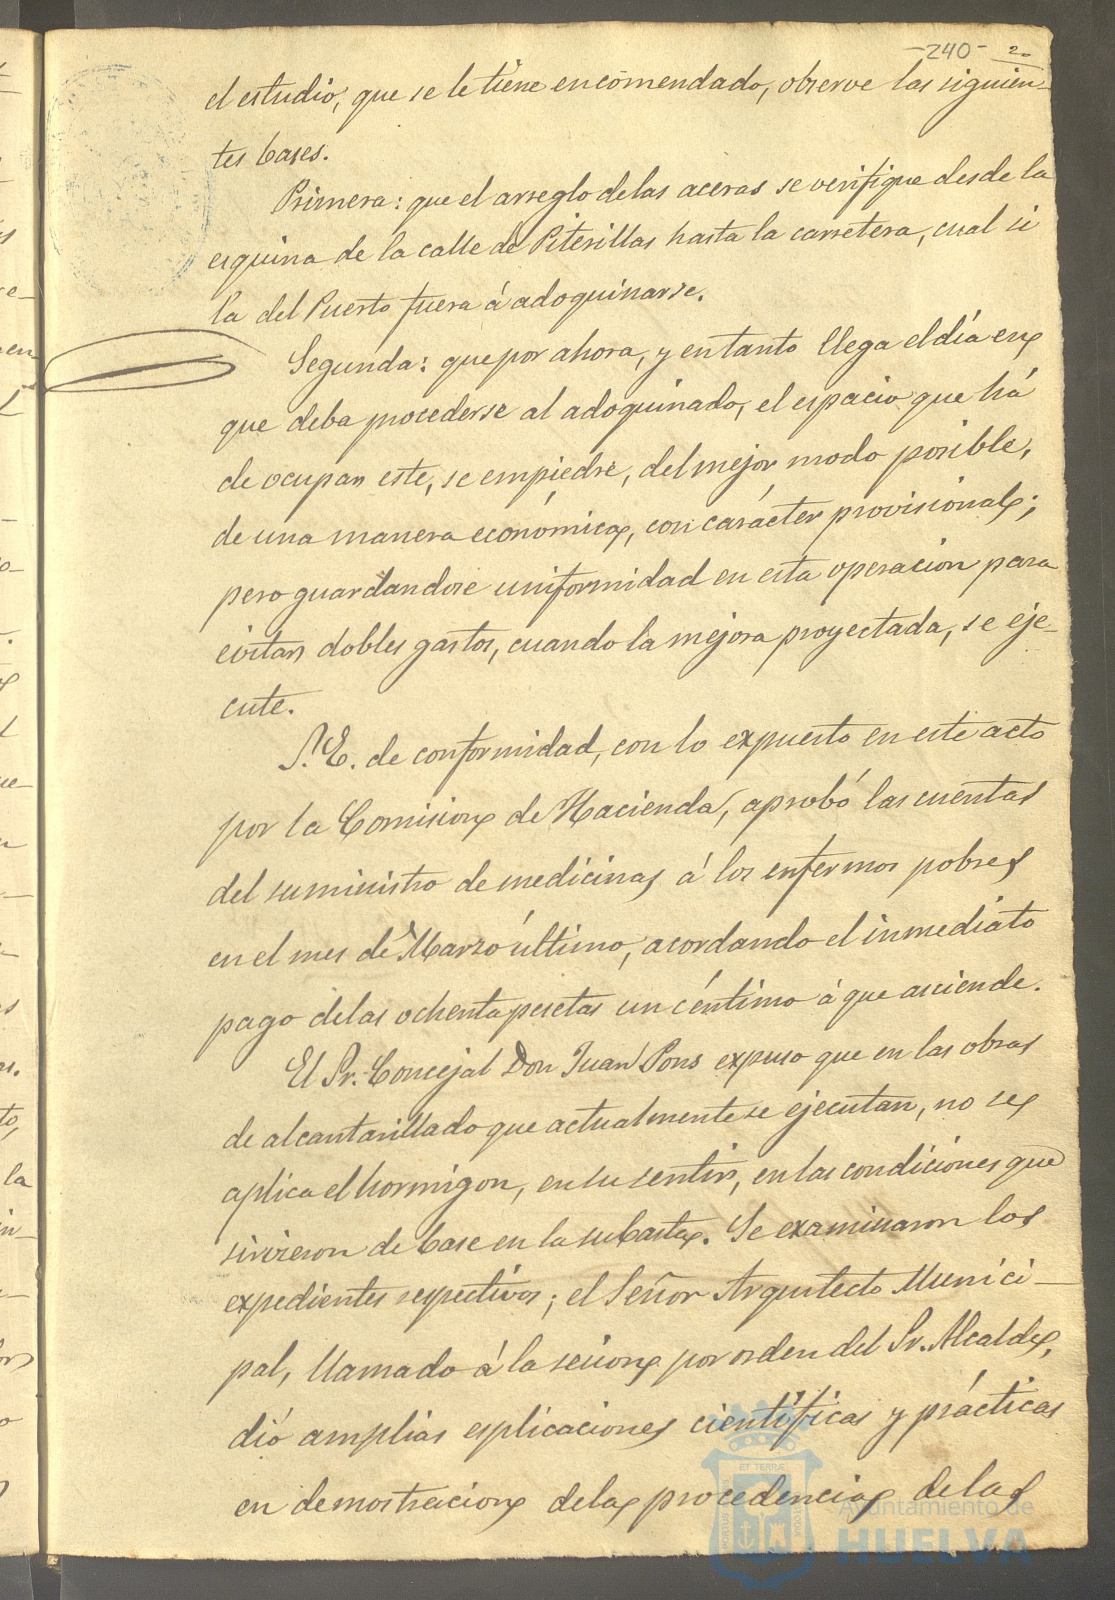 -240- 20
el estudio, que se le tiene encomendado, observe las siguien-
tes bases.
Primera: que el arreglo de las aceras se verifique desde la
esquina de la calle de Piterillas hasta la carretera, cual si
la del Puerto fuera á adoquinarse.
Segunda: que por ahora, y en tanto llega el día en
que deba procederse al adoquinado, el espacio que há
de ocupar este, se empiedre, del mejor modo posible,
de una manera económica, con carácter provisional;
pero guardandose uniformidad en esta operacion para
evitar dobles gastos, cuando la mejora proyectada, se eje-
cute.
S. E. de conformidad, con lo expuesto en este acto
por la Comision de Hacienda, aprobó las cuentas
del suministro de medicinas á los enfermos pobres
en el mes de Marzo último, acordando el inmediato
pago de las ochenta pesetas un céntimo á que asciende.
El Sr. Concejal Don Juan Pons expuso que en las obras
de alcantarillado que actualmente se ejecutan, no se
aplica el hormigon, en su sentir, en las condiciones que
sirvieron de base en la subasta. Se examinaron los
expedientes respectivos; el Señor Arquitecto Munici-
pal, llamado á la sesion por orden del Sr. Alcalde,
dió amplias esplicaciones científicas y prácticas
en demostracion de la procedencia de las
Ayuntamiento de
HUELVA